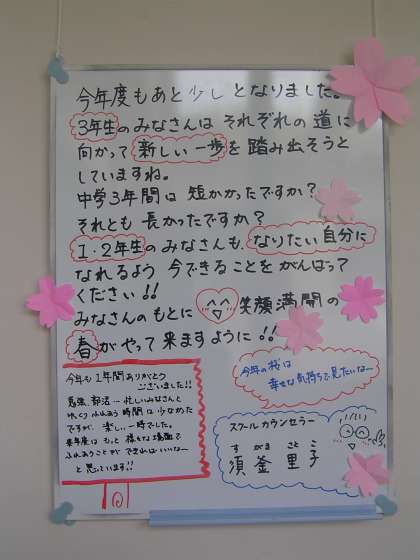 今年度もあと少しとなりました。
3年生のみなさんは それぞれの道に
向かって 新しい一歩を踏み出そうと
していますね。
中学3年間は 短かかったですか?
それとも 長かったですか?
1・2年生のみなさんも、なりたい自分に
なれるよう 今できることをがんばって
ください!!
みなさんのもとに 笑顔満開の
春がやって来ますように!!
今年も1年間ありがとう
ございました!!
勉強、部活… 忙しいみなさんと
ゆっくりふれあう時間は少なかった
ですが、楽しい一時でした。
来年度は もっと 様々な場面で
ふれあうことが できればいいな〜
と思っています!!
今年の桜は
幸せな気持ちで見たいな〜
スクールカウンセラー
すがま さとこ
須釜 里子